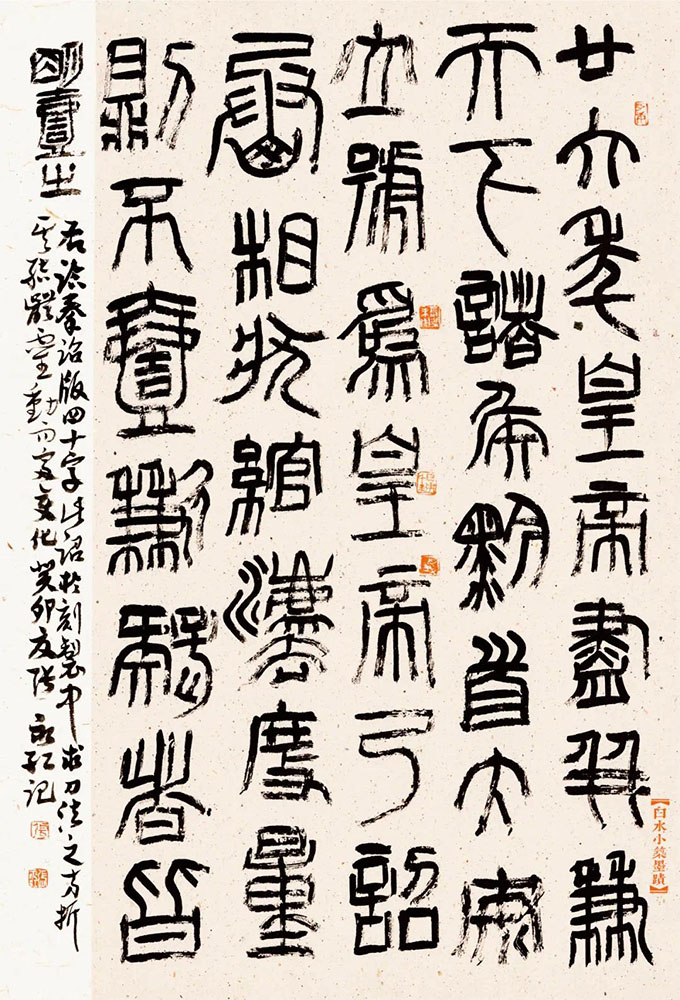 廿六年皇帝盡并兼
天下諸侯黔首大安
立號爲皇帝乃詔
丞相狀綰灋度量
則不壹歉疑者皆
明壹之
右臨秦詔版四十字此詔於刻製中求刀法之方折
體靈動而富變化癸卯夏張永红记
【白水小築墨蹟】